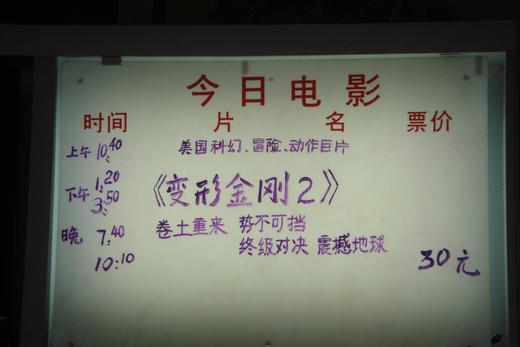 今日电影
时间 片名 票价
上午 10:40 美国科幻、冒险、动作巨片
下午 1:20
3:50 《变形金刚2》
晚 7:40 卷土重来 势不可挡
终级对决 震撼地球
10:10 30元